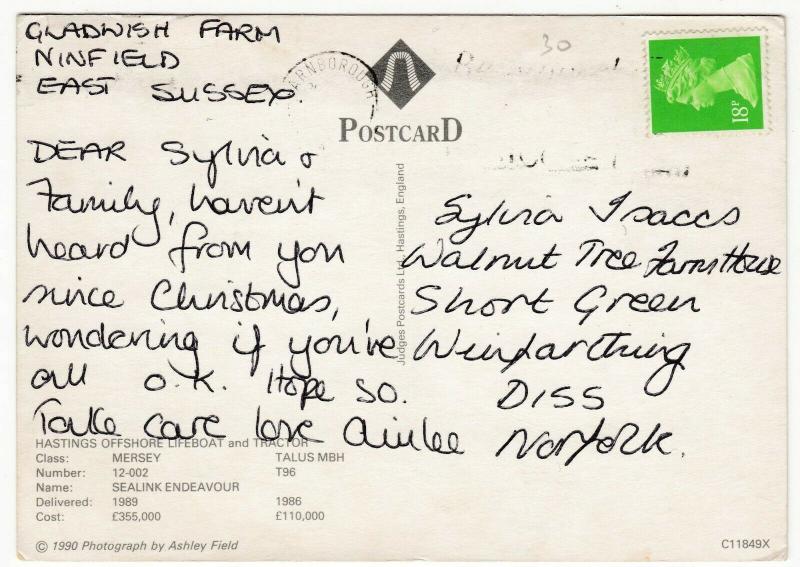 GLADWISH FARM
NINFIELD
EAST SUSSEX.
DEAR Sylvia &
Family, haven't
heard from you
since Christmas,
wondering if you've
all O.K. Hope so.
Take care love
30
ARNBOROUGH
18P
POSTCARD
Judges Postcards Ltd., Hastings, England
Sylvia Isaccs
Walnut Tree Farm House
Short Green
Winfarthing
DISS
Norfolk.
HASTINGS OFFSHORE LIFEBOAT and TRACTOR
Class: MERSEY TALUS MBH
Number: 12-002 T96
Name: SEALINK ENDEAVOUR
Delivered: 1989 1986
Cost: £355,000 £110,000
© 1990 Photograph by Ashley Field
C11849X